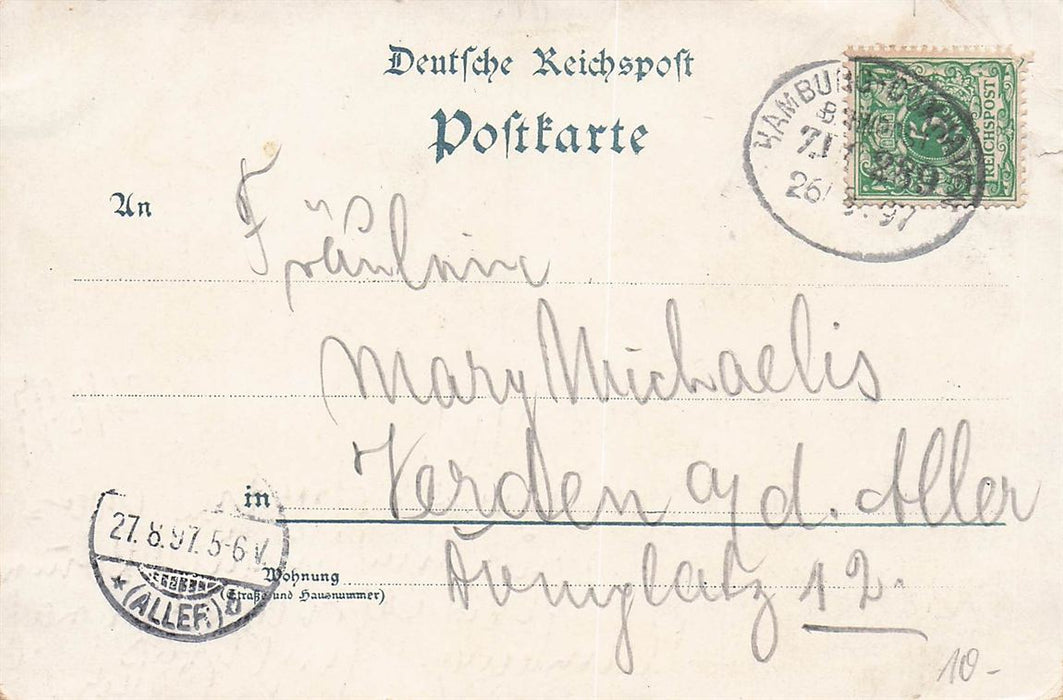 Deutsche Reichspost
Postkarte
HAMBURG-CUXHAVEN
ZUG 259
26/8.97
REICHSPOST
An
Fräulein
Mary Michaelis
in Verden a/d. Aller
27.8.97. 5-6 V.
(ALLER)
Wohnung
(Straße und Hausnummer)
Domplatz 12.
10.-